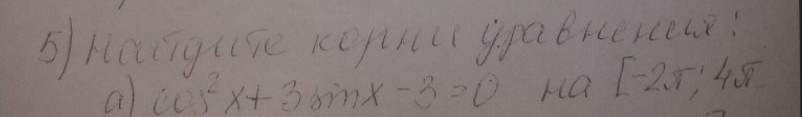 5) найдите корни уравнения:
а) cos²x+3sinx-3=0 на [-2π; 4π